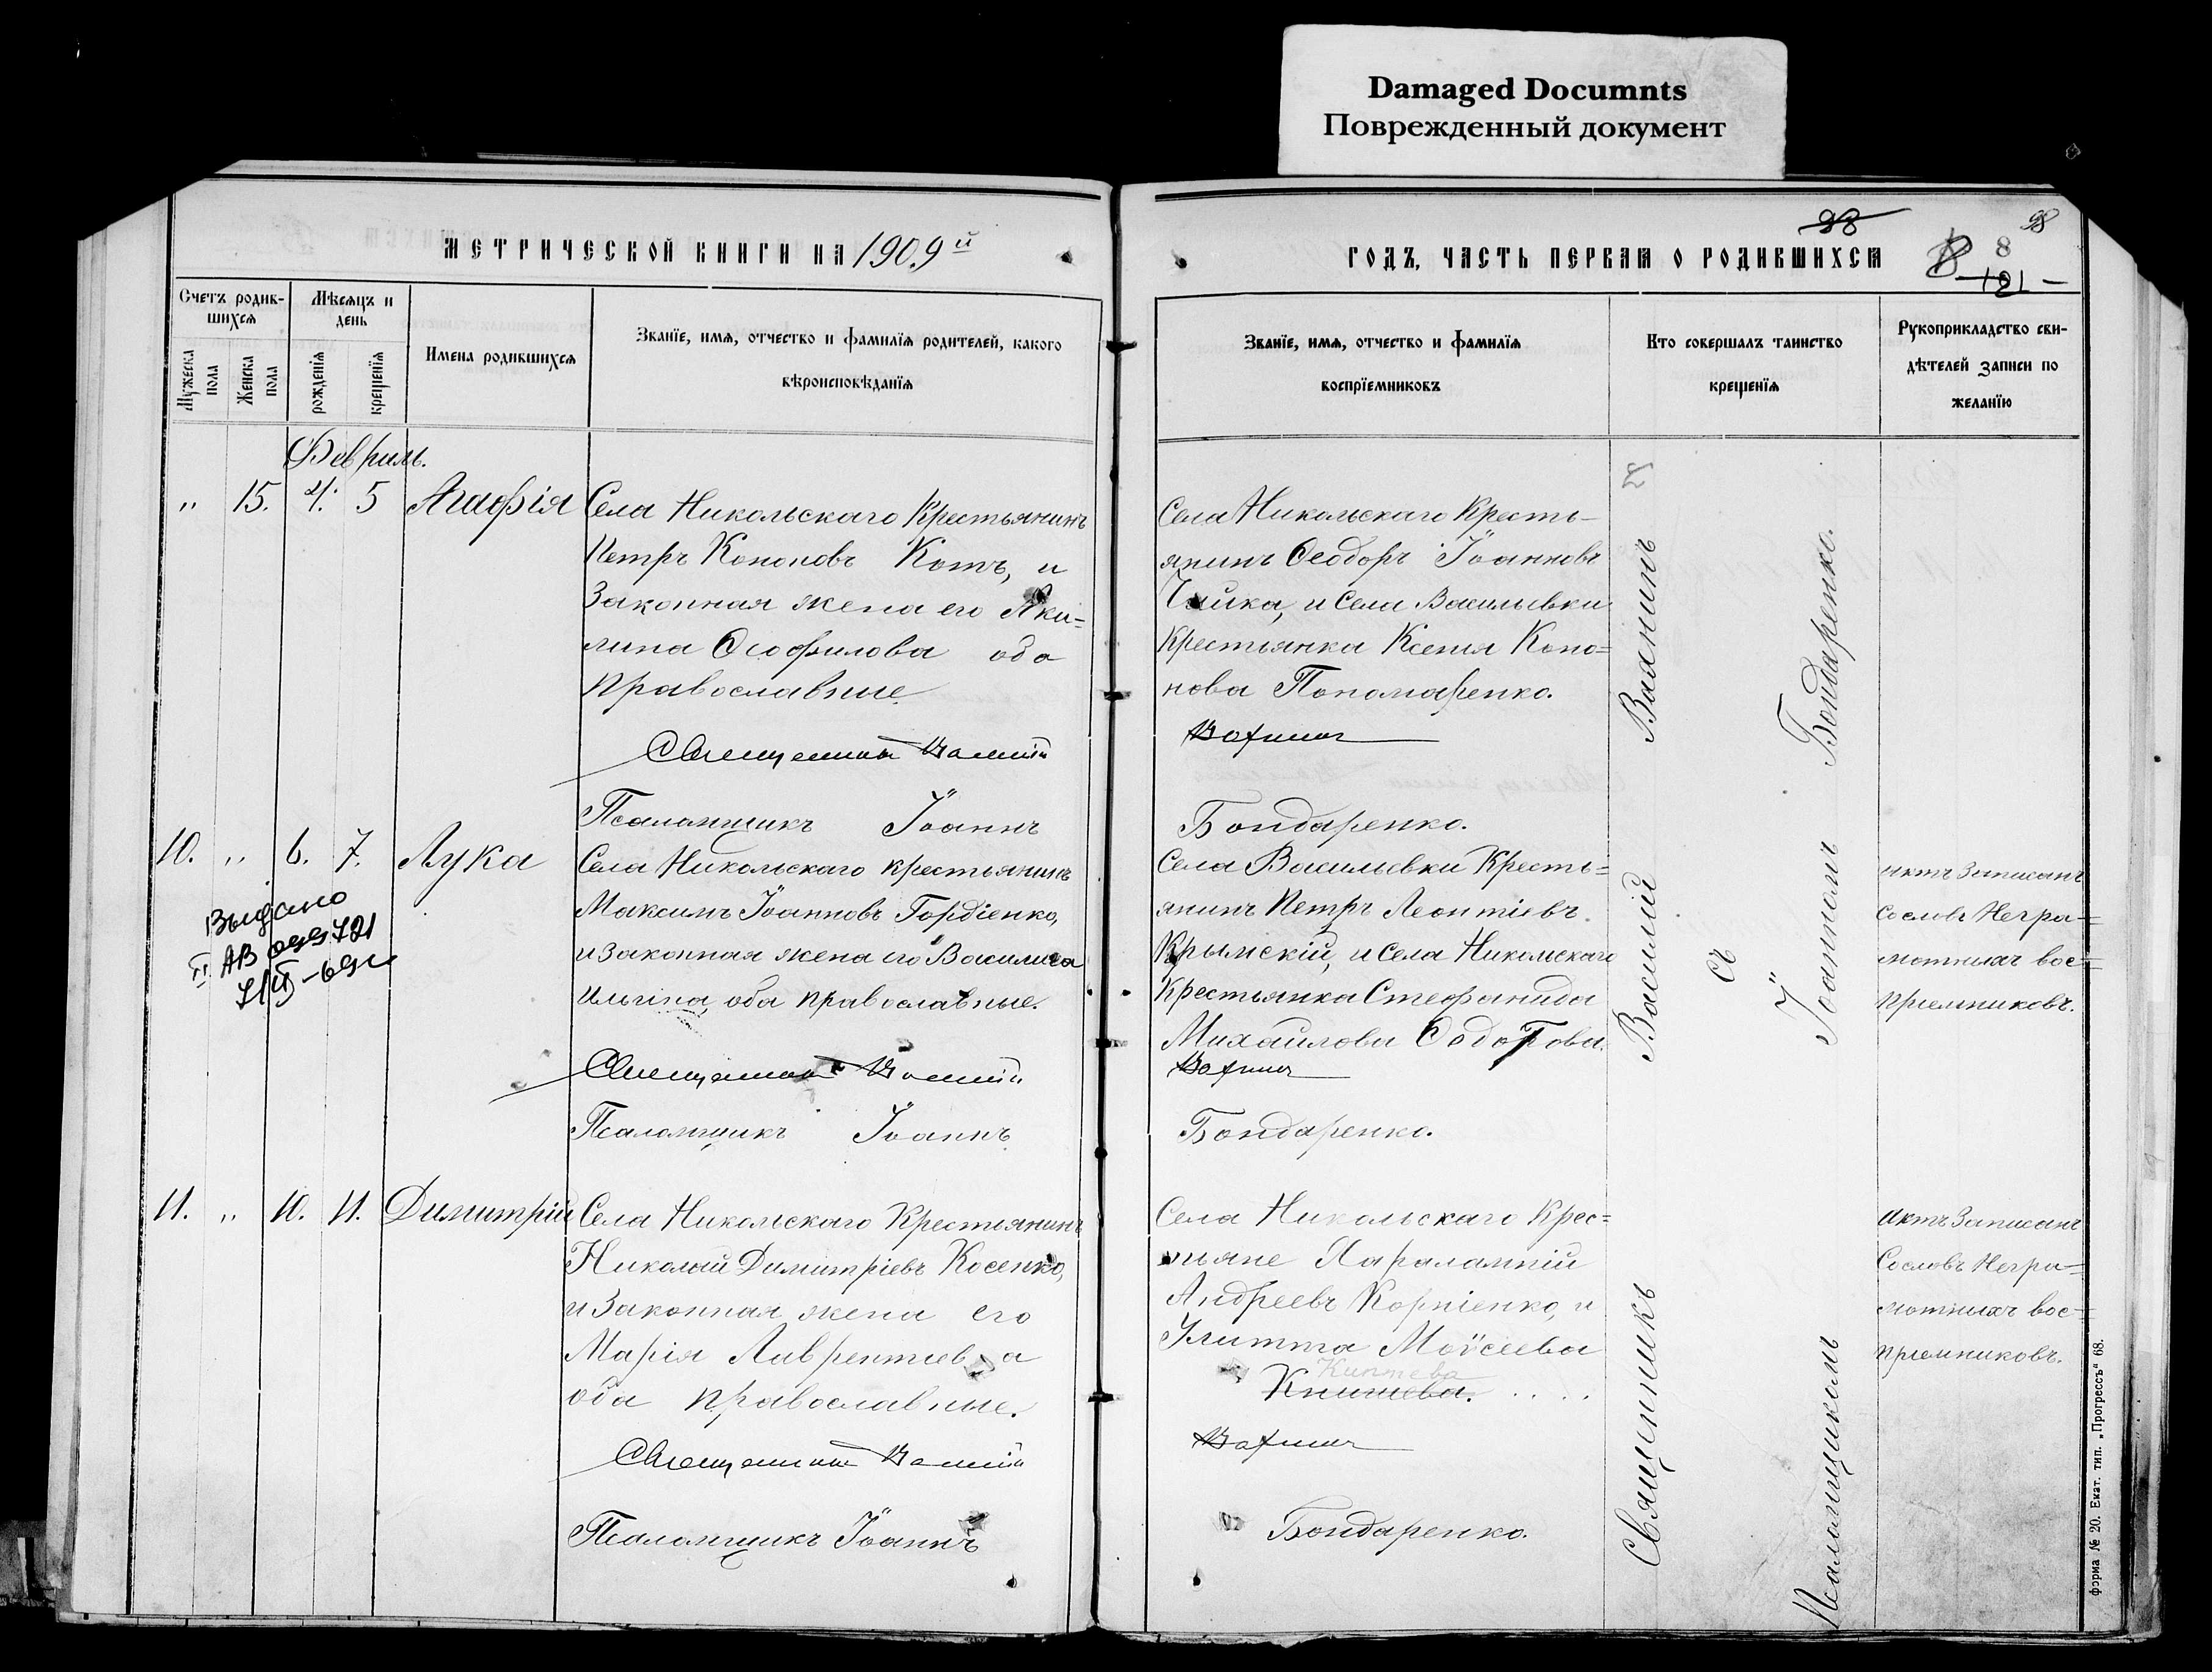 Damaged Documnts
Поврежденный документ
МЕТРИЧЕСКОЙ КНИГИ НА 1909й
ГОДЪ, ЧАСТЬ ПЕРВАЯ О РОДИВШИХСЯ
98
98
8
101
Счетъ родив-
шихся
Мужеска пола
Женска пола
Мѣсяцъ и
день
рожденія
крещенія
Имена родившихся
Званіе, имя, отчество и фамилія родителей, какого
вѣроисповѣданія
Званіе, имя, отчество и фамилія
воспріемниковъ
Кто совершалъ таинство
крещенія
Рукоприкладство сви-
дѣтелей записи по
желанію
Февраль.
" 15. 4. 5 Агафія
Села Никольскаго Крестьянинъ
Петръ Кононовъ Котъ, и
Законная жена его Аки=
лина Ѳеофилова оба
православные.
Священникъ Василій
Псаломщикъ Іоаннъ
Села Никольскаго Кресть-
янинъ Ѳеодоръ Іоанновъ
Чайка, и Села Васильевки
Крестьянка Ксенія Коно=
нова Пономаренко.
Бондаренко.
10. " 6. 7. Лука
Выдано
II АВ 099721
Села Никольскаго крестьянинъ
Максимъ Іоанновъ Гордіенко,
и законная жена его Василиса
Ильина, оба православные.
Священникъ Василій
Псаломщикъ Іоаннъ
Села Васильевки Кресть=
янинъ Петръ Леонтіевъ
Крымскій, и Села Никольскаго
Крестьянка Стефанида
Михайлова
Бондаренко.
актъ Записанъ
со словъ Негра=
мотныхъ вос=
пріемниковъ.
11. " 10. 11. Димитрій
Села Никольскаго Крестьянинъ
Николай Димитріевъ Косенко,
и Законная жена его
Марія Лаврентіева
оба православные.
Священникъ Василій
Псаломщикъ Іоаннъ
Села Никольскаго Крес=
тьяне Харалампій
Андреевъ Корніенко, и
Улитта Моѵсеева
Бондаренко.
Актъ Записанъ
Со словъ Негра=
мотныхъ вос=
пріемниковъ.
Священникъ Василій
съ
Псаломщикомъ Іоанномъ Бондаренко.
форма № 20. Екат. тип. „Прогрессъ" 68.